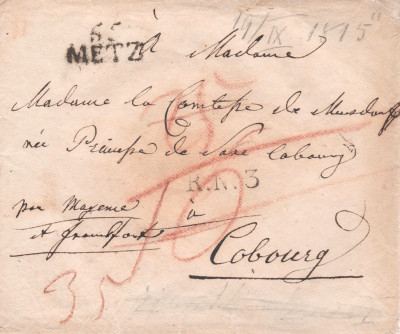 55
METZ
1/IX 1815
A Madame
Madame la Comtesse de Mensdorff
née Princesse de Saxe Cobourg
R.N.3
par Mayence
et francfort
à
Cobourg
35